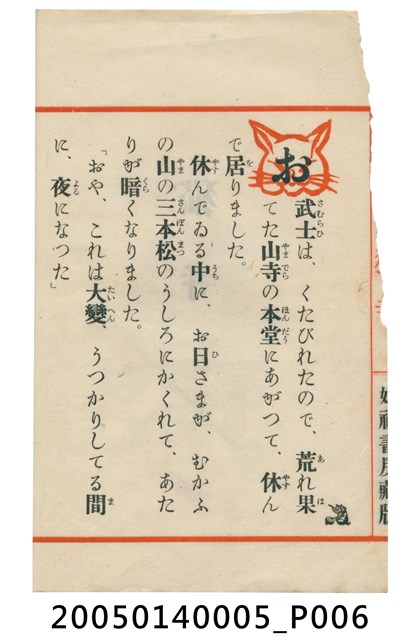 お武士は、くたびれたので、荒れ果
てた山寺の本堂にあがつて、休ん
で居りました。
休んでゐる中に、お日さまが、むかふ
の山の三本松のうしろにかくれて、あた
りが暗くなりました。
「おや、これは大變、うつかりしてる間
に、夜になつた」
書房藏版
20050140005_P006